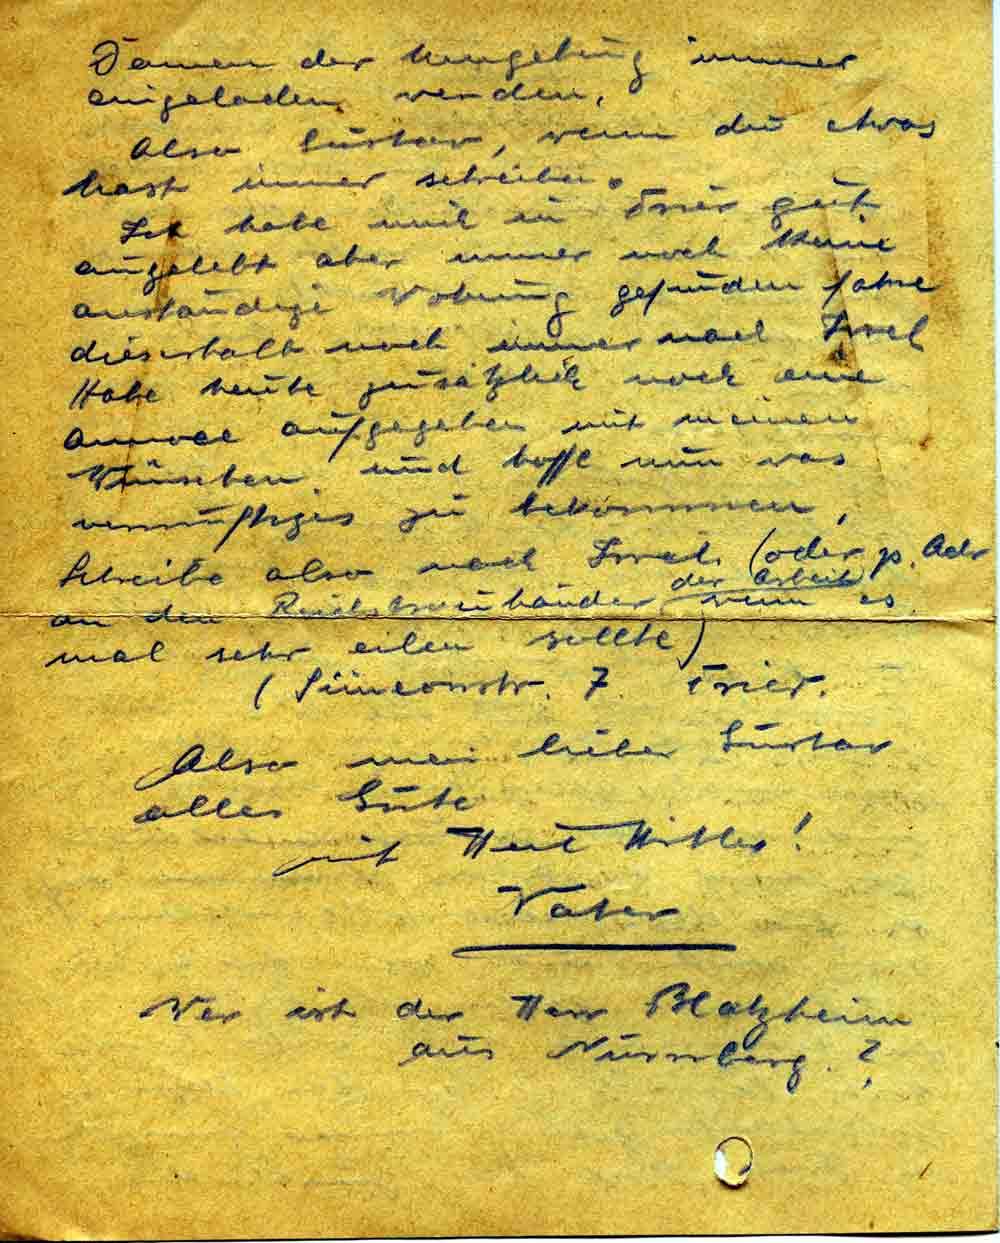 Damen der Umgebung immer
eingeladen werden.
Also Gustav, wenn du etwas
hast immer schreiben.
Ich habe mich in Trier gut
eingelebt aber immer noch keine
anständige Wohnung gefunden fahre
dieserhalb noch immer nach Irrel
Habe heute zusätzlich noch eine
Annonce aufgegeben mit meinen
Wünschen und hoffe nun was
vernünftiges zu bekommen,
Schreibe also nach Irrel. (oder p. Adr
an den Reichstreuhänder der Arbeit wenn es
mal sehr eilen sollte)
(Simeonstr. 7. Trier.
Also mein lieber Gustav
alles Gute
mit Heil Hitler!
Vater
Wer ist der Herr Blatzheim
aus Nürnberg.?